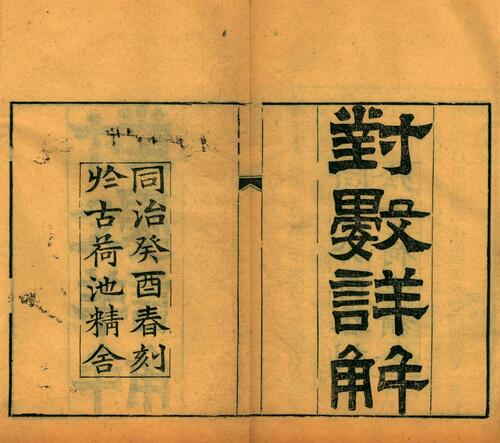 對數詳解
同治癸酉春刻
於古荷池精舍